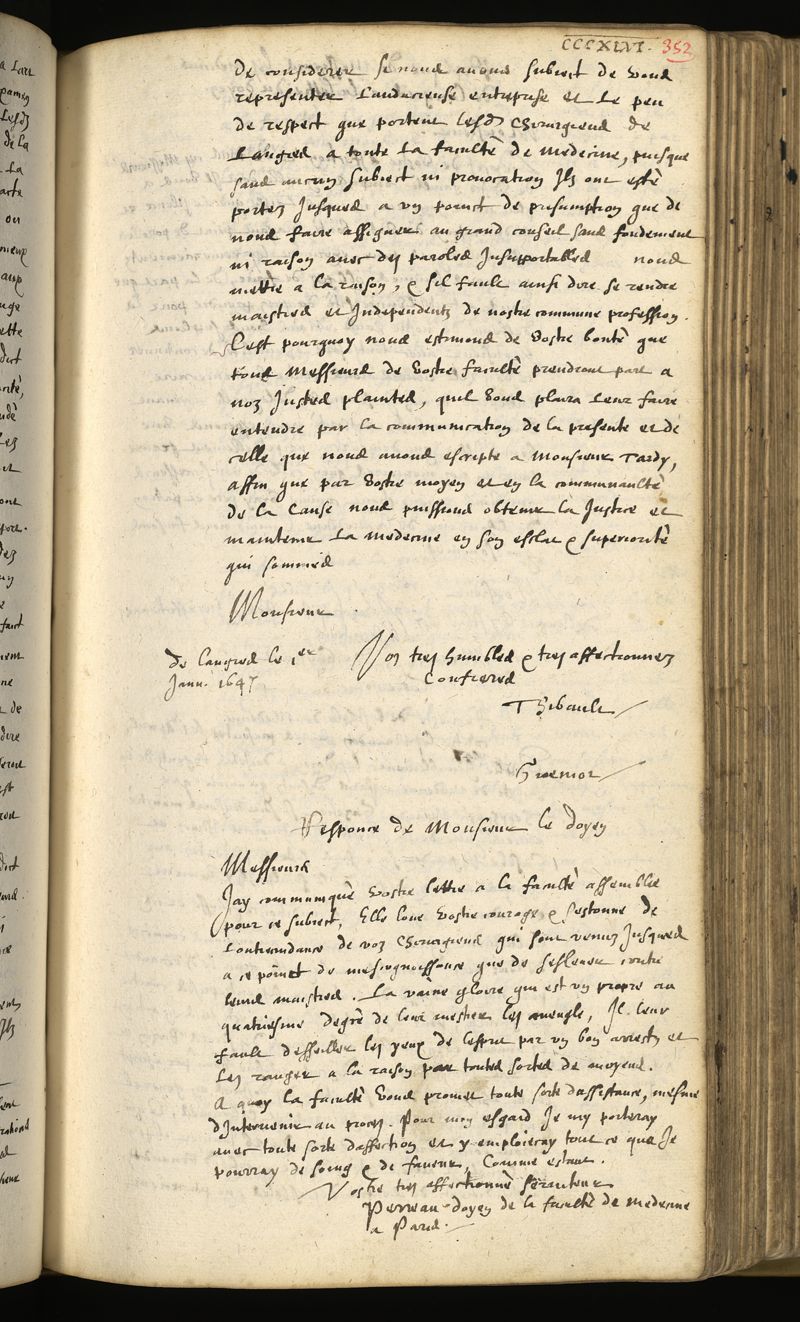 CCCXLVI. 352
de considerer si nous auons subiect de vous
representer L'audacieuse entreprise et le peu
de respect que portent lesd. Chirurgiens de
Langres a toute la faculté de Medecine, puisque
sans aucun subiect ni prouocation Ilz ont esté
portez Jusques a vn poinct de presumption que de
nous faire assigner au grand conseil sans fondement
ni raison auec des paroles Insupportables nous
mettre a la raison, & s'il fault ainsi dire se rendre
maistres et Independentz de nostre commune profession.
C'est pourquoy nous estimons de vostre bonté que
tous Messieurs de vostre faculté prendront part a
noz Justes plaintes, quil vous plaira leur faire
entendre par la communication de la presente et de
celle que nous auons escripte a Monsieur Tardy,
affin que par vostre moyen et en la communaulté
de la Cause nous puissions obtenir la Justice et
maintenir la Medecine en son esclat & superiorité
qui sommes
Monsieur
De Langres le 1er
Janu. 1647
Voz tres humbles & tres affectionnez
Confreres
Thibault
Response de Monsieur le Doyen
Messieurs
J'ay communiqué vostre lettre a la faculté assemblée
pour ce subiect, Elle loue vostre courage & s'estonne de
L'outrecuidance de voz Chirurgiens qui sont venuz Jusques
a ce poinct de mescognoissance que de s'esleuer contre
leurs maistres. La vaine gloire qui est vn propre au
quatriesme degré de leur mestier les aueugle, Il leur
fault dessiller les yeux de l'esprit par vn bon arrest et
Les ranger a la raison par toutes sortes de moyens.
A quoy la faculté vous promet toute sorte d'assistance, mesme
d'Interuenir au procez. Pour mon esgard Je my porteray
auec toute sorte d'affection et y emploieray tout ce que Je
pourray de soing & de faueur, Comme estant.
Vostre tres affectionné seruiteur
Perreau doyen de la faculté de Medecine
a Paris.